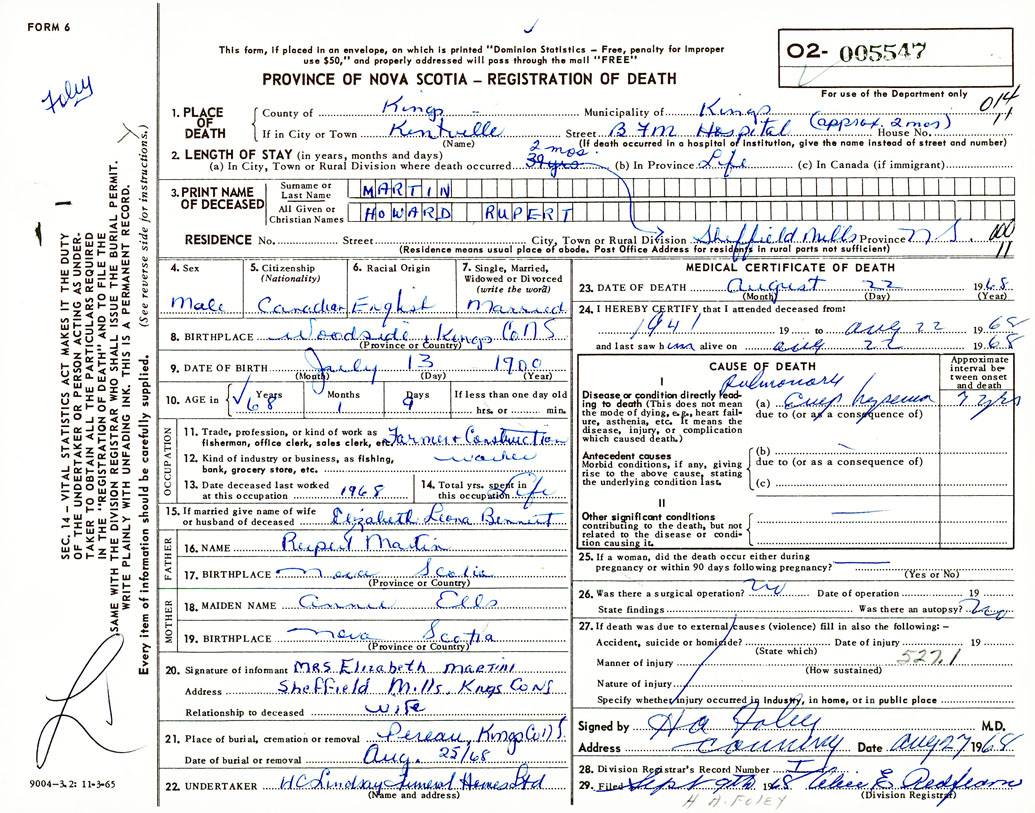 FORM 6
Foley
This form, if placed in an envelope, on which is printed "Dominion Statistics – Free, penalty for improper
use $50," and properly addressed will pass through the mail "FREE"
PROVINCE OF NOVA SCOTIA – REGISTRATION OF DEATH
O2- 005547
For use of the Department only
014
11
1. PLACE OF DEATH
County of Kings Municipality of Kings
If in City or Town Kentville Street B F M Hospital (approx. 2 mos) House No.
(Name) (If death occurred in a hospital or institution, give the name instead of street and number)
2. LENGTH OF STAY (in years, months and days) 2 mos.
(a) In City, Town or Rural Division where death occurred 39 yrs (b) In Province Life (c) In Canada (if immigrant)
3. PRINT NAME OF DECEASED
Surname or Last Name MARTIN
All Given or Christian Names HOWARD RUPERT
RESIDENCE No. Street City, Town or Rural Division Sheffield Mills Province N S.
(Residence means usual place of abode. Post Office Address for residents in rural parts not sufficient)
11
4. Sex
Male
5. Citizenship
(Nationality)
Canadian
6. Racial Origin
English
7. Single, Married,
Widowed or Divorced
(write the word)
Married
8. BIRTHPLACE Woodside, Kings Co NS
(Province or Country)
9. DATE OF BIRTH July 13 1900
(Month) (Day) (Year)
10. AGE in Years Months Days If less than one day old
68 1 9 hrs. or min.
OCCUPATION
11. Trade, profession, or kind of work as
fisherman, office clerk, sales clerk, etc. Farmer & Construction
12. Kind of industry or business, as fishing,
bank, grocery store, etc. worker
13. Date deceased last worked
at this occupation 1968
14. Total yrs. spent in
this occupation Life
15. If married give name of wife
or husband of deceased Elizabeth Leona Bennett
FATHER
16. NAME Rupert Martin
17. BIRTHPLACE Nova Scotia
(Province or Country)
MOTHER
18. MAIDEN NAME Annie Ells
19. BIRTHPLACE Nova Scotia
(Province or Country)
20. Signature of informant MRS. Elizabeth MARTIN
Address Sheffield Mills, Kngs Co NS
Relationship to deceased wife
21. Place of burial, cremation or removal Pereau, Kings Co NS
Date of burial or removal Aug. 25/68
22. UNDERTAKER HC Lindsay Funeral Homes Ltd
(Name and address)
MEDICAL CERTIFICATE OF DEATH
23. DATE OF DEATH August 22 1968
(Month) (Day) (Year)
24. I HEREBY CERTIFY that I attended deceased from:
1941 19 to Aug 22 1968
and last saw him alive on Aug 22 1968
CAUSE OF DEATH
Approximate interval between onset and death
I
Disease or condition directly leading to death (This does not mean the mode of dying, e.g., heart failure, asthenia, etc. It means the disease, injury, or complication which caused death.)
Pulmonary
(a) Emphysema 7 yrs
due to (or as a consequence of)
Antecedent causes
Morbid conditions, if any, giving rise to the above cause, stating the underlying condition last.
(b)
due to (or as a consequence of)
(c)
II
Other significant conditions
contributing to the death, but not related to the disease or condition causing it.
25. If a woman, did the death occur either during
pregnancy or within 90 days following pregnancy?
(Yes or No)
26. Was there a surgical operation? No Date of operation 19
State findings Was there an autopsy? No
27. If death was due to external causes (violence) fill in also the following: –
Accident, suicide or homicide? Date of injury 19
(State which)
Manner of injury 527.1
(How sustained)
Nature of injury
Specify whether injury occurred in industry, in home, or in public place
Signed by H A Foley M.D.
Address Date Aug 27 1968
28. Division Registrar's Record Number
29. Filed Sept 9th 1968 Alice E Redfearn
(Division Registrar)
H A. FOLEY
SEC. 14 – VITAL STATISTICS ACT MAKES IT THE DUTY
OF THE UNDERTAKER OR PERSON ACTING AS UNDER-
TAKER TO OBTAIN ALL THE PARTICULARS REQUIRED
IN THE "REGISTRATION OF DEATH" AND TO FILE THE
SAME WITH THE DIVISION REGISTRAR WHO SHALL ISSUE THE BURIAL PERMIT.
WRITE PLAINLY WITH UNFADING INK. THIS IS A PERMANENT RECORD.
Every item of information should be carefully supplied. (See reverse side for instructions.)
9004–3.2: 11-3-65